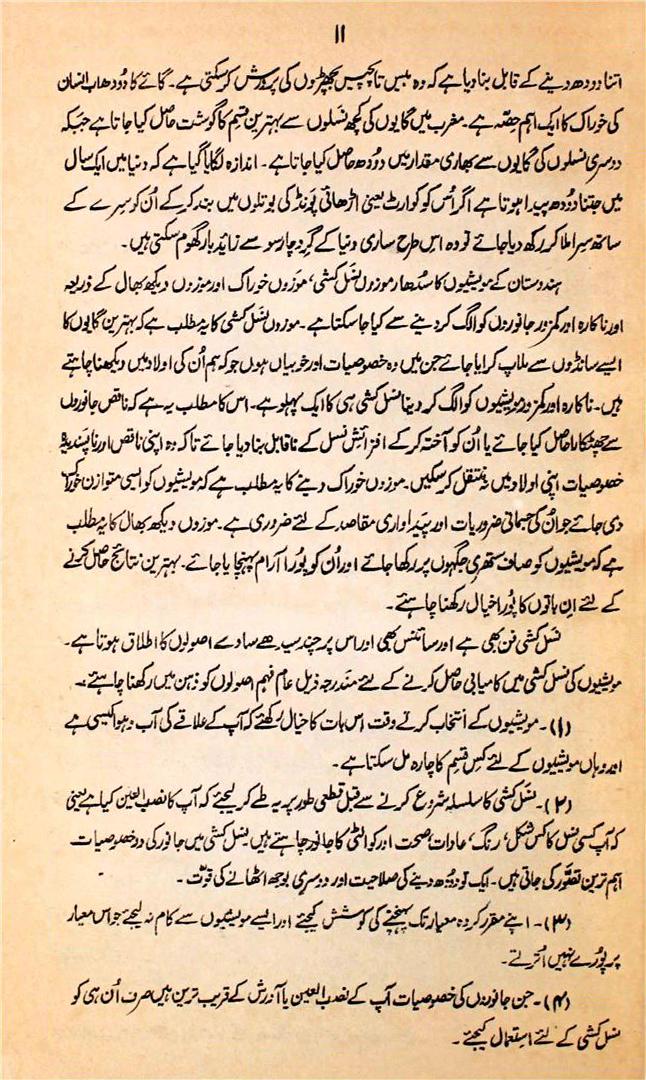 ۱۱
اتنا دودھ دینے کے قابل بنا دیا ہے کہ وہ بیس تا پچیس بچھڑوں کی پرورش کر سکتی ہے۔ گائے کا دودھ اب انسان
کی خوراک کا ایک اہم حصّہ ہے۔ مغرب میں گایوں کی کچھ نسلوں سے بہترین قسم کا گوشت حاصل کیا جاتا ہے جبکہ
دوسری نسلوں کی گایوں سے بھاری مقدار میں دودھ حاصل کیا جاتا ہے۔ اندازہ لگایا گیا ہے کہ دنیا میں ایک سال
میں جتنا دودھ پیدا ہوتا ہے اگر اُس کو کوارٹ یعنی اڑھائی پونڈ کی بوتلوں میں بند کر کے اُن کو سرے کے
ساتھ سرا ملا کر رکھ دیا جائے تو وہ اس طرح ساری دنیا کے گرد چار سو سے زاید بار گھوم سکتی ہیں۔
ہندوستان کے مویشیوں کا سدھار موزوں نسل کشی، موزوں خوراک اور موزوں دیکھ بھال کے ذریعہ
اور ناکارہ اور کمزور جانوروں کو الگ کر دینے سے کیا جا سکتا ہے۔ موزوں نسل کشی کا یہ مطلب ہے کہ بہترین گایوں کا
ایسے سانڈوں سے ملاپ کرایا جائے جن میں وہ خصوصیات اور خوبیاں ہوں جو کہ ہم اُن کی اولاد میں دیکھنا چاہتے
ہیں۔ ناکارہ اور کمزور مویشیوں کو الگ کر دینا نسل کشی ہی کا ایک پہلو ہے۔ اس کا مطلب یہ ہے کہ ناقص جانوروں
سے چھٹکارا حاصل کیا جائے یا اُن کو آختہ کر کے افزائش نسل کے ناقابل بنا دیا جائے تاکہ وہ اپنی ناقص اور ناپسندیدہ
خصوصیات اپنی اولاد میں نہ منتقل کر سکیں۔ موزوں خوراک دینے کا یہ مطلب ہے کہ مویشیوں کو ایسی متوازن خوراک
دی جائے جو اُن کی جسمانی ضروریات اور پیداواری مقاصد کے لئے ضروری ہے۔ موزوں دیکھ بھال کا یہ مطلب
ہے کہ مویشیوں کو صاف ستھری جگہوں پر رکھا جائے اور اُن کو پورا آرام پہنچایا جائے۔ بہترین نتائج حاصل کرنے
کے لئے ان باتوں کا پورا خیال رکھنا چاہئے۔
نسل کشی فن بھی ہے اور سائنس بھی اور اس پر چند سیدھے سادے اصولوں کا اطلاق ہوتا ہے۔
مویشیوں کی نسل کشی میں کامیابی حاصل کرنے کے لئے مندرجہ ذیل عام فہم اصولوں کو ذہن میں رکھنا چاہئے۔
(۱)۔ مویشیوں کے انتخاب کرتے وقت اس بات کا خیال رکھئے کہ آپ کے علاقے کی آب و ہوا کیسی ہے
اور وہاں مویشیوں کے لئے کس قسم کا چارہ مل سکتا ہے۔
(۲)۔ نسل کشی کا سلسلہ شروع کرنے سے قبل قطعی طور پر یہ طے کر لیجئے کہ آپ کا نصب العین کیا ہے یعنی
کہ آپ کسی نسل کا کس شکل، رنگ، عادات، صحت اور کوالٹی کا جانور چاہتے ہیں۔ نسل کشی میں جانور کی دو خصوصیات
اہم ترین تصوّر کی جاتی ہیں۔ ایک تو دودھ دینے کی صلاحیت اور دوسری بوجھ اٹھانے کی قوت۔
(۳)۔ اپنے مقرر کردہ معیار تک پہنچنے کی کوشش کیجئے اور ایسے مویشیوں سے کام نہ لیجئے جو اس معیار
پر پورے نہیں اترتے۔
(۴)۔ جن جانوروں کی خصوصیات آپ کے نصب العین یا آدرش کے قریب ترین ہیں صرف اُن ہی کو
نسل کشی کے لئے استعمال کیجئے۔